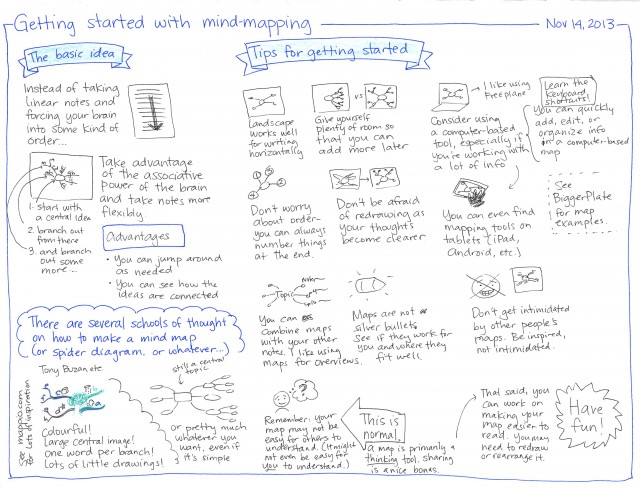 Getting started with mind-mapping
Nov 14, 2013
The basic idea
Instead of taking
linear notes and
forcing your brain
into some kind of
order...
1. Start with
a central idea
2. branch out
from there
3. and branch
out some
more...
Take advantage
of the associative
power of the brain
and take notes more
flexibly.
Advantages
• You can jump around
as needed
• You can see how the
ideas are connected
There are several schools of thought
on how to make a mind map
(or spider diagram, or whatever...)
Tony Buzan etc
See mappio.com
for lots of inspiration
Colourful!
Large central image!
one word per branch!
Lots of little drawings!
still a central
topic
or pretty much
whatever you
want, even if
it's simple
Tips for getting started
Landscape
works well
for writing
horizontally
vs
Give yourself
plenty of room so
that you can
add more later
I like using
Freeplane
Consider using
a computer-based
tool, especially if
you're working with
a lot of info
Learn the
keyboard
shortcuts!
You can quickly
add, edit, or
organize info
in a computer-based
map
Don't worry
about order-
you can always
number things
at the end.
Don't be afraid
of redrawing as
your thoughts
become clearer
You can even find
mapping tools on
tablets (iPad,
Android, etc.)
See
BiggerPlate
for map
examples.
Topic
You can
combine maps
with your other
notes. I like using
maps for overviews.
Maps are not
silver bullets.
See if they work for
you and where they
fit well.
Don't get intimidated
by other people's
maps. Be inspired,
not intimidated.
Remember: your
map may not be
easy for others to
understand. (It might
not even be easy for
you to understand.)
This is
normal.
a map is primarily a
thinking tool. sharing
is a nice bonus.
That said, you
can work on
making your
map easier to
read. You may
need to redraw
or rearrange it.
Have
fun!